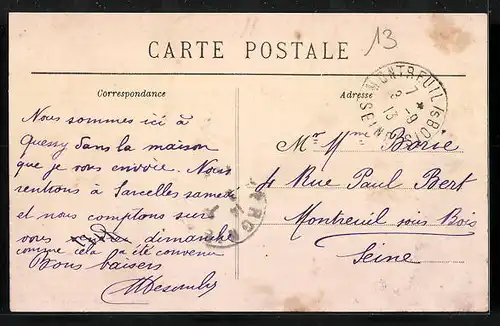 13
CARTE POSTALE
Correspondance
Adresse
MONTREUIL S BOIS
7 * 2 - 9 13
SEINE
Nous sommes ici à
Quessy dans la maison
que je vous envoie. Nous
rentrons à Sarcelles samedi
et nous comptons sur
vous dimanche
comme cela a été convenu
Bons baisers
Mr Mme
4 Rue Paul Bert
Montreuil sous Bois
Seine